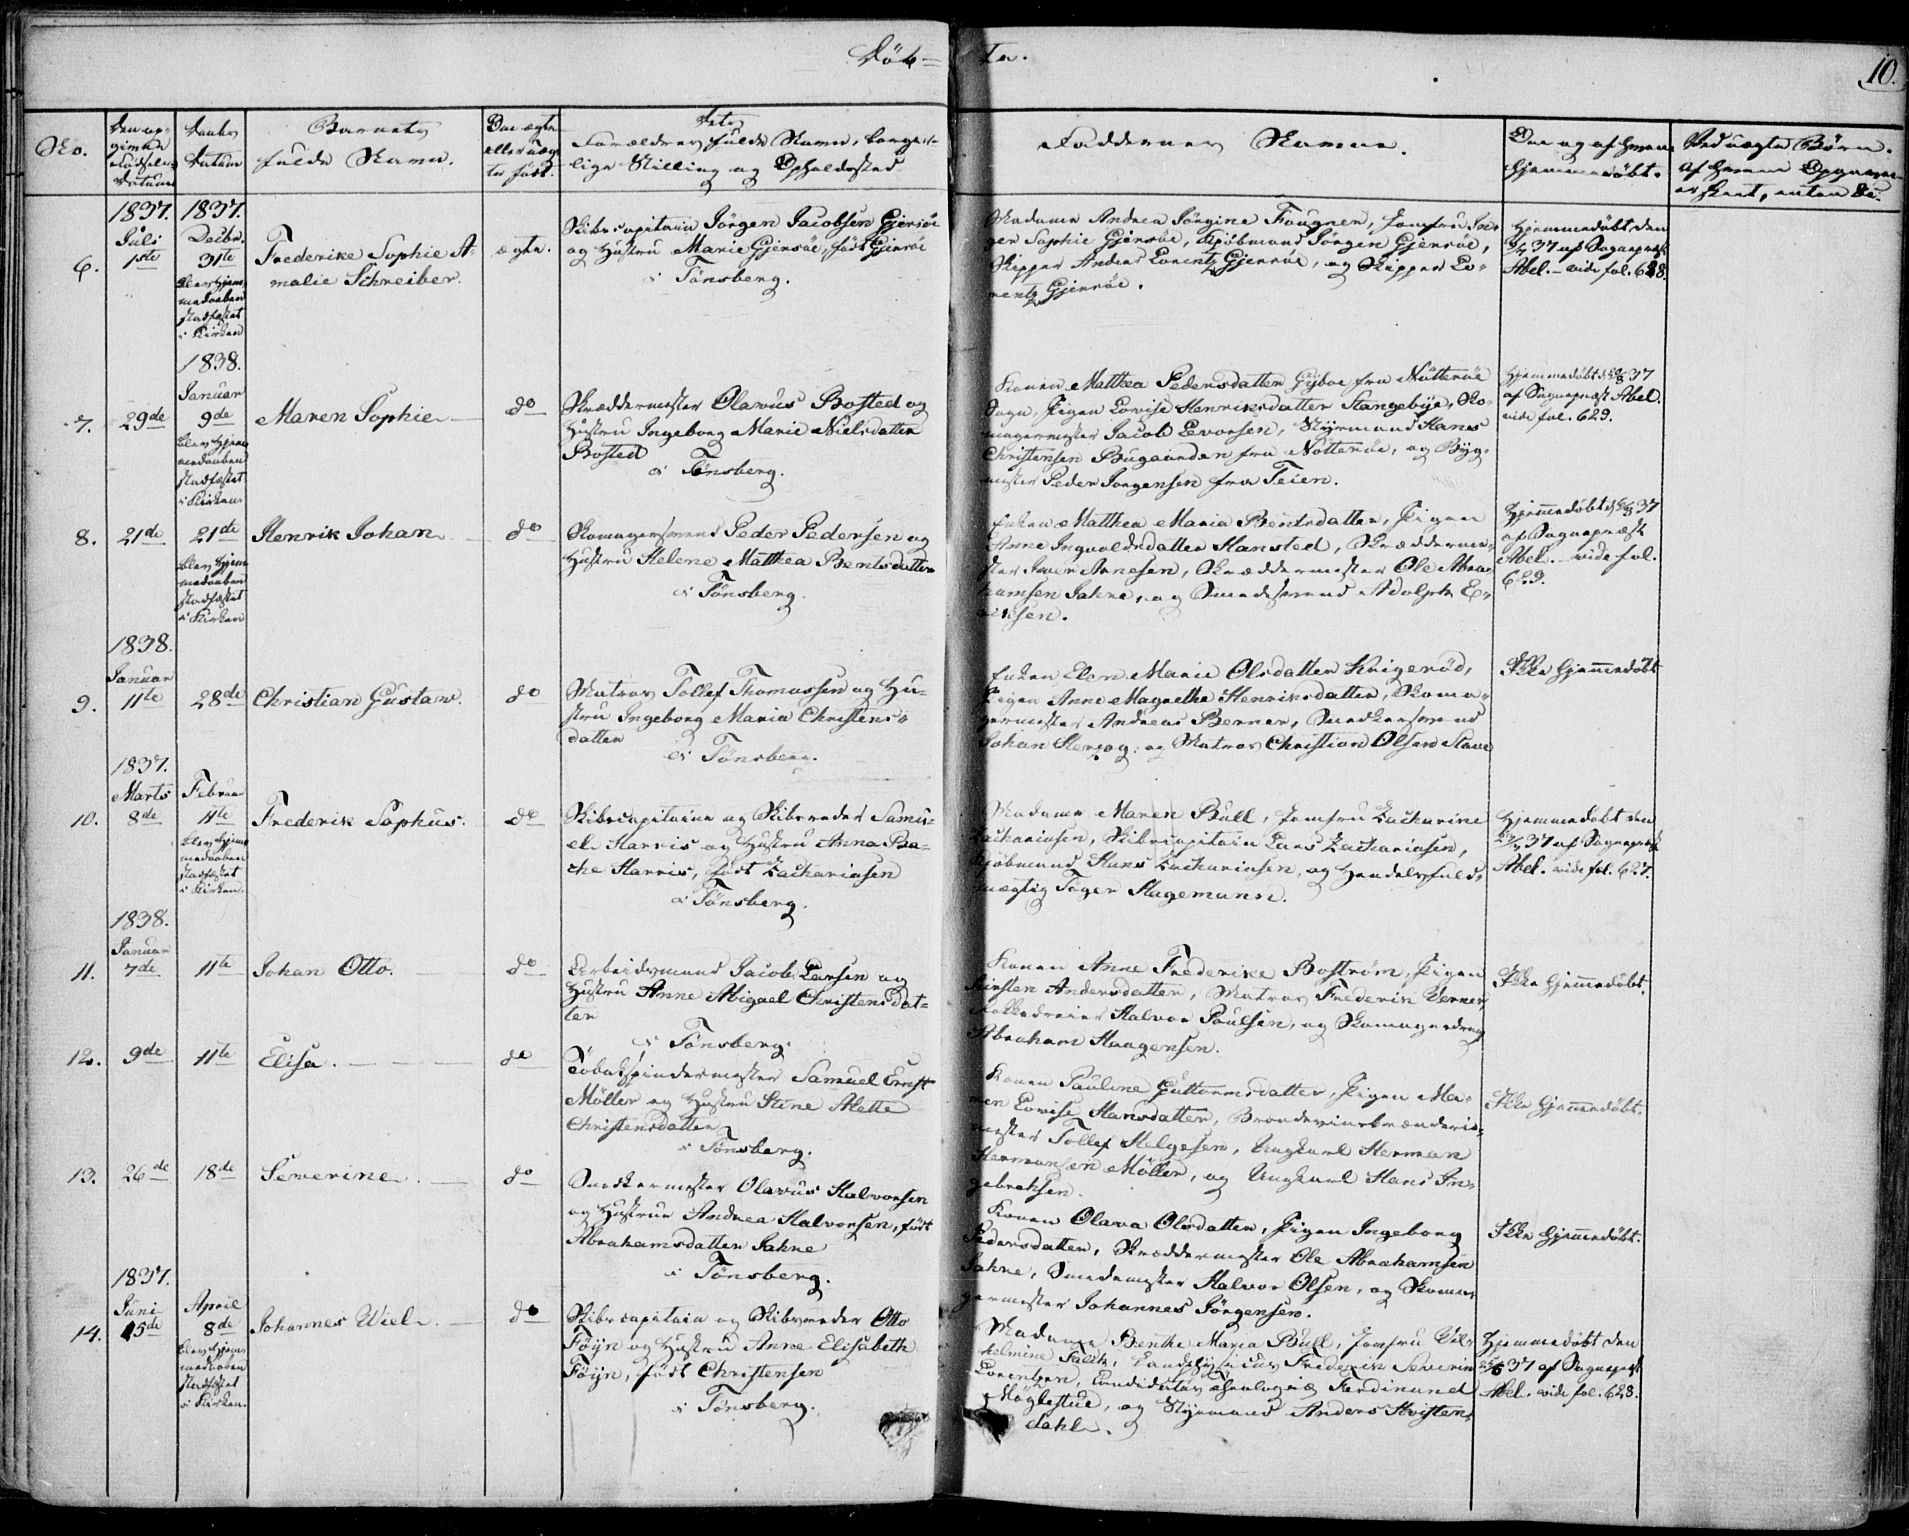 Döb=
te.
10.
No.
Den op-
givne
Fødsels
Datum
Daabs
Datum
Barnets
fulde Navn.
Om ægte
eller uæg-
te født.
Dets
Forældres fulde Navn, borger-
lige Stilling og Opholdssted.
Faddernes Navne.
Om og af hvem
hjemmedøbt.
Ved uægte Børn.
6.
1837.
Juli
1ste
1837.
Decbr.
31te
blev hjem-
medaaben
stadfæstet
i Kirken
Frederike Sophie A-
malie Schreiber.
ægte.
Skibscapitain Jörgen Jacobsen Gjersöe
og Hustru Marie Gjersöe, født Gjersöe
i Tönsberg.
Madame Andrea Jörgine Fougner, Jomfru In-
ger Sophie Gjersöe, Kjöbmand Jörgen Gjersöe,
Skipper Andreas Lorentz Gjersöe, og Skipper Lo-
rentz Gjersöe.
Hjemmedöbt den
37 af Sognepræst
Abel. – vide fol. 628.
7.
29de
1838.
Januar
9de
blev hjem-
medaaben
stadfæstet
i Kirken.
Maren Sophie
do
Skræddermester Olavus Bosted og
Hustru Ingeborg Marie Nielsdatter
Bosted
i Tönsberg.
Konen Matthea Pedersdatter Gipöe fra Nötteröe
Sogn, Pigen Lovise Henriksdatter Stangebÿe, Sko-
magermester Jacob Evensen, Styrmand Hans
Christensen Bugaarden fra Nötteröe, og Byg-
mester Peder Jörgensen fra Teien.
Hjemmedöbt 37
af Sognepræst Abel.
vide fol. 629.
8.
21de
21de
blev hjem-
medaaben
stadfæstet
i Kirken
Henrik Johan
do
Skomagersvend Peder Pedersen og
Hustru Helene Matthea Bentsdatter
i Tönsberg.
Enken Matthea Maria Bentsdatter, Pigen
Anne Ingvoldsdatter Hansted, Skrædderme-
ster Iver Arnesen, Skræddermester Ole Abra-
hamsen Jahre, og Smedesvend Adolph E-
riksen.
Hjemmedöbt 37
af Sognepræst
Abel. – vide fol.
629.
9.
1838.
Januar
11te
28de
Christian Gustav.
do
Matros Tollef Thomassen og Hu-
stru Ingeborg Maria Christens-
datter
i Tönsberg.
Enken Elen Marie Olsdatter Krigeröd,
Pigen Anne Magrethe Henriksdatter, Skoma-
germester Andreas Berner, Snedkersvend
Johan Herzog, og Matros Christian Olsen Stave
Ikke hjemmedöbt
10.
1837.
Marts
8de
Februar
11te
blev hjem-
medaaben
stadfæstet
i Kirken.
Frederik Sophus.
do
Skibscapitain og Skibsreder Samu-
el Harris og Hustru Anna Ba-
che Harris, født Zachariasen
i Tönsberg.
Madame Maren Bull, Jomfru Zacharine
Zachariasen, Skibscapitain Lars Zachariasen,
Kjöbmand Hans Zachariasen, og Handelsfuld-
mægtig Töger Hagemann.
Hjemmedöbt den
37 af Sognepræst
Abel. vide fol. 627.
11.
1838.
Januar
7de
11te
Johan Otto.
do
Arbeidsmand Jacob Larsen og
Hustru Anne Abigael Christensdat-
ter
i Tönsberg.
Konen Anne Frederike Boström, Pigen
Kirsten Andersdatter, Matros Frederik Verner,
Blokkedreier Halvor Poulsen, og Skomagerdreng
Abraham Haagensen.
Ikke hjemmedöbt.
12.
9de
11te
Elise.
do
Tobakspindermester Samuel Ernst
Möller og Hustru Stine Alette
Christensdatter
i Tönsberg.
Konen Pauline Guttormsdatter, Pigen Ma-
ren Lovise Hansdatter, Brændeviinsbrænderie-
mester Tollef Helgesen, Ungkarl Herman
Hermansen Möller, og Ungkarl Hans In-
gebretsen.
Ikke hjemmedöbt.
13.
26de
18de
Severine.
do
Snedkermester Olavus Halvorsen
og Hustru Andrea Halvorsen, født
Abrahamsdatter Jahre
i Tönsberg.
Konen Olava Olsdatter, Pigen Ingeborg
Pedersdatter, Skræddermester Ole Abrahamsen
Jahre, Smedemester Halvor Olsen, og Skoma-
germester Johannes Jörgensen.
Ikke hjemmedöbt.
14.
1837.
Juni
15de
April
8de
blev hjem-
medaaben
stadfæstet
i Kirken.
Johannes Wiel.
do
Skibscapitain og Skibsreder Otto
Föyn og Hustru Anne Elisabeth
Föyn, født Christensen
i Tönsberg.
Madame Benthe Maria Bull, Jomfru Vil-
helmine Falck, Landphysicus Frederik Severin
Lorentzen, Candidatus theologiæ Ferdinand
Möglestue, og Styrmand Anders Kvisten-
dahl.
Hjemmedöbt den
37 af Sognepræst
Abel. vide fol. 628.